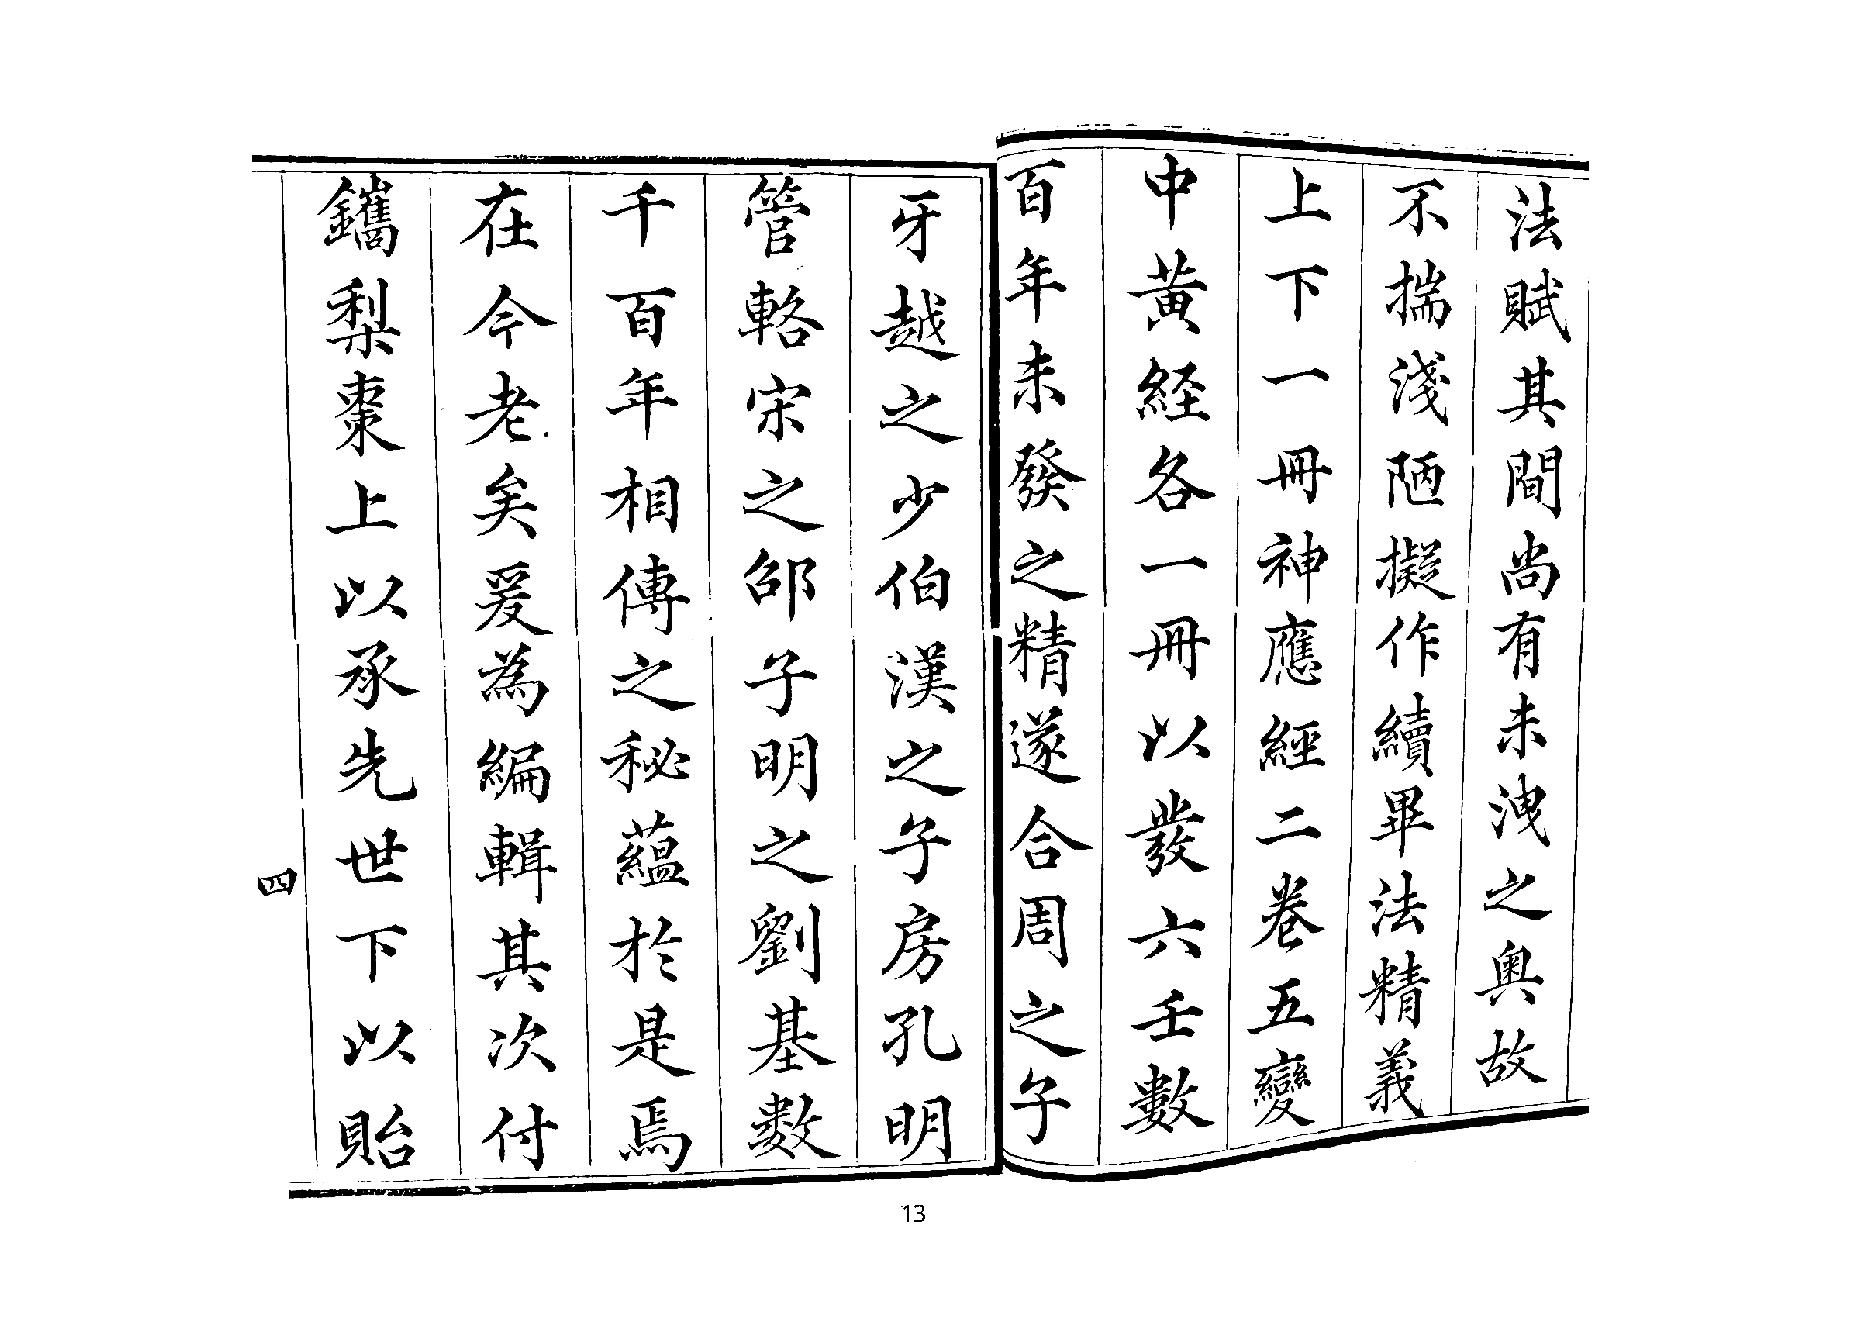 法賦其間尚有未洩之奧故
不揣淺陋擬作續畢法精義
上下一冊神應經二卷五變
中黃經各一冊以發六壬數
百年未發之精遂合周之子
牙越之少伯漢之子房孔明
管輅宋之邵子明之劉基數
千百年相傳之秘蘊於是焉
在今老矣爰為編輯其次付
鑴梨棗上以承先世下以貽
四
13